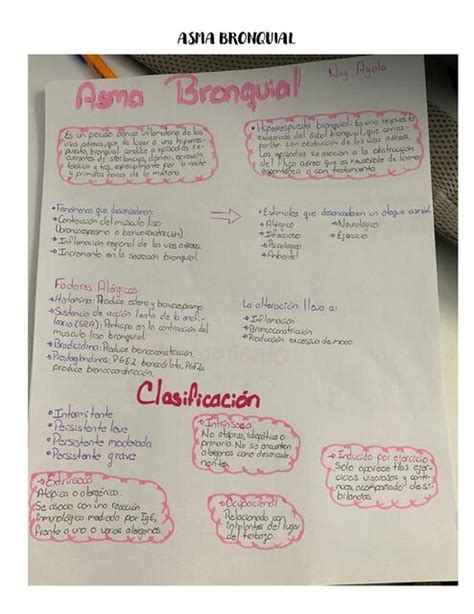 ASMA BRONQUIAL
Asma Bronquial
Nay Ayala
Es un proceso crónico inflamatorio de las
vías aéreas, que da lugar a una hiperres-
puesta bronquial conduce a episodios re-
currentes de sibilancias, disnea, opresión
torácica y tos, especialmente por la noche
y primeras horas de la mañana
• Hiperrespuesta bronquial: Es una respuesta
exagerada del árbol bronquial, que
con obstrucción de las vías aéreas.
Los episodios se asocian a la obstrucción
del flujo aéreo que es reversible de forma
espontánea o con tratamiento.
• Fenómenos que desencadenan:
Contracción del músculo liso
(broncoespasmo o broncoconstricción)
Inflamación regional de las vías aéreas.
Incremento en la secreción bronquial.
• Estímulos que desencadenan un ataque
Alérgico
Neurológico
Infeccioso
Ejercicio
Psicológico
Ambiental
Factores Alérgicos
Histamina: Produce edema y broncoespasmo
Sustancia de acción lenta de la anafi-
laxia (SRA): Participa en la contracción del
músculo liso bronquial.
Bradicidina: Produce broncoconstricción.
Prostaglandinas: PGE2 broncodilata, PGF2a
produce broncoconstricción.
La alteración lleva a:
Inflamación
Broncoconstricción
Producción excesiva de moco
Clasificación
Intermitente
Persistente leve
Persistente moderada
Persistente grave
Intrínseca
No atópica, idiopática o
primaria. No se encuentran
alérgenos como desencade-
nantes.
Inducido por ejercicio
Solo aparece tras ejer-
cicios vigorosos y contí-
nuos, acompañado de si-
bilancias.
Extrínseca
Atópica o alergénica.
Se asocia con una reacción
inmunológica mediada por IgE,
frente a uno o varios alérgenos.
Ocupacional
Relacionado con
del lugar
del trabajo.